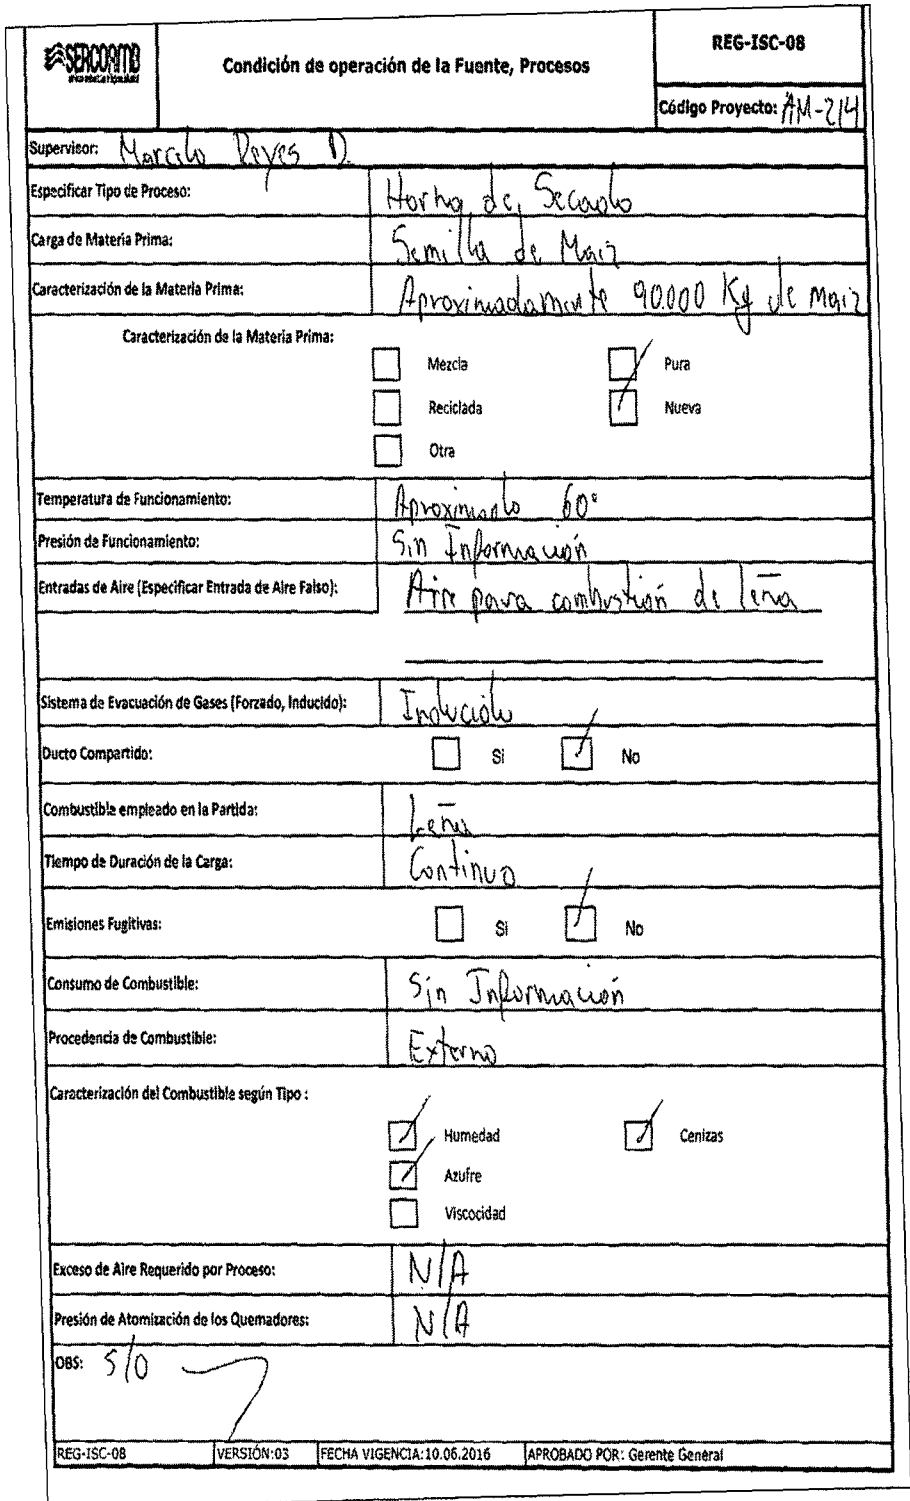 SERCOAMB
Condición de operación de la Fuente, Procesos
REG-ISC-08
Código Proyecto: AM-214
Supervisor: Marcelo Reyes D.
Especificar Tipo de Proceso: Horno de Secado
Carga de Materia Prima: Semilla de Maiz
Caracterización de la Materia Prima: Aproximadamente 90.000 Kg de maiz
Caracterización de la Materia Prima:
Mezcla Pura
Reciclada Nueva
Otra
Temperatura de Funcionamiento: Aproximado 60°
Presión de Funcionamiento: Sin Información
Entradas de Aire (Especificar Entrada de Aire Falso): Aire para combustión de leña
Sistema de Evacuación de Gases (Forzado, Inducido): Inducido
Ducto Compartido: Si No
Combustible empleado en la Partida: Leña
Tiempo de Duración de la Carga: Continuo
Emisiones Fugitivas: Si No
Consumo de Combustible: Sin Información
Procedencia de Combustible: Externo
Caracterización del Combustible según Tipo :
Humedad Cenizas
Azufre
Viscocidad
Exceso de Aire Requerido por Proceso: N/A
Presión de Atomización de los Quemadores: N/A
OBS: S/O
REG-ISC-08 VERSIÓN:03 FECHA VIGENCIA:10.06.2016 APROBADO POR: Gerente General